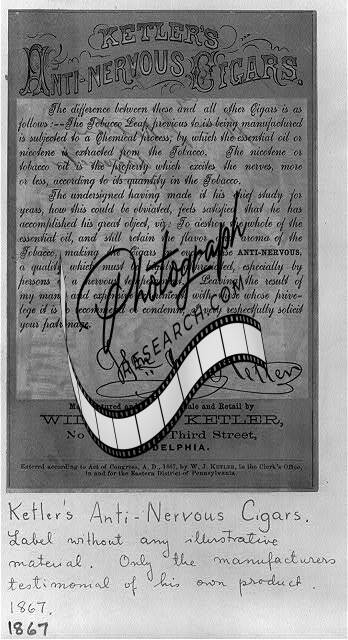 KETLER'S
ANTI-NERVOUS CIGARS.
The difference between these and all other Cigars is as
follows:--The Tobacco Leaf, previous to its being manufactured
is subjected to a Chemical process, by which the essential oil or
nicotene is extracted from the Tobacco. The nicotene or
tobacco oil is the property which excites the nerves, more
or less, according to its quantity in the Tobacco.
The undersigned having made it his chief study for
years, how this could be obviated, feels satisfied that he has
accomplished his great object, viz: To destroy whole of the
essential oil, and still retain the flavor aroma of the
Tobacco, making Cigars ANTI-NERVOUS,
a quality which must especially by
persons a nervous Leaving the result of
my many expensive with those prive-
lege it is condemn, respectfully solicit
your patronage.
Photograph
RESEARCH.COM
Ketler
Manufactured Sale and Retail by
KETLER,
No Third Street,
DELPHIA.
Entered according to Act of Congress, A. D., 1867, by W. J. KETLER, in the Clerk's Office,
in and for the Eastern District of Pennsylvania.
Ketler's Anti-Nervous Cigars.
Label without any illustrative
material. Only the manufacturers
testimonial of his own product.
1867.
1867